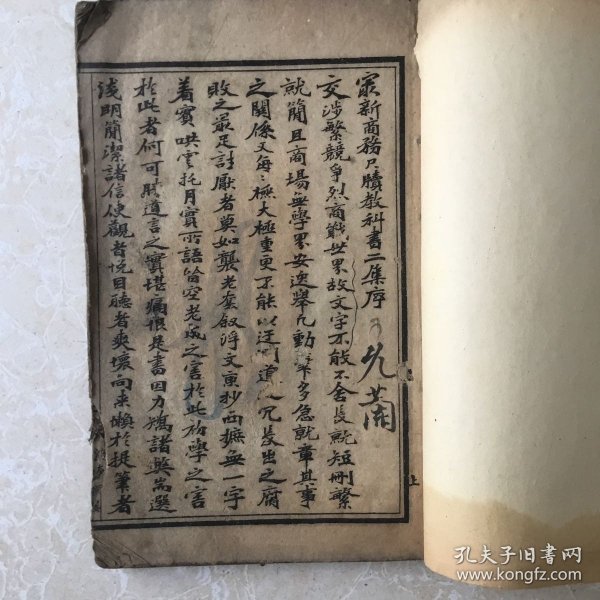 最新商務尺牘教科書二集序
交涉繁競爭烈商戰世界故文字不能不舍長就短刪繁
就簡且商場無學界安逸舉凡動多急就章其事
之關係又每每極大極重更不能以迂道冗長出之腐
敗之最足討厭者莫如襲老套敘浮文東抄西摭無一字
着實哄雲托月實所語皆空老成之害於此初學之害
於此者何可勝道言之實堪痛恨是書因力矯諸弊耑選
淺明簡潔諸信使觀者悅目聽者爽懷向來懶於提筆者
上
孔夫子旧书网
www.kongfz.com